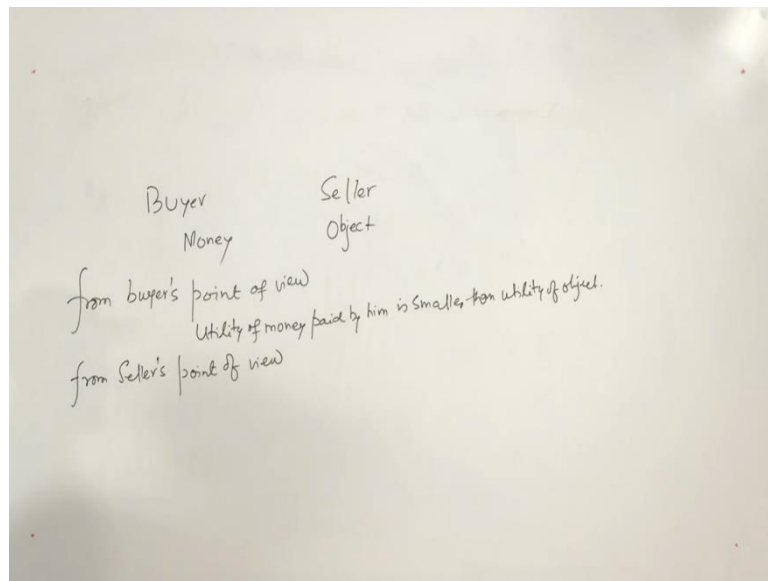 Buyer Seller
Money Object
from buyer's point of view
Utility of money paid by him is smaller than utility of object.
from Seller's point of view